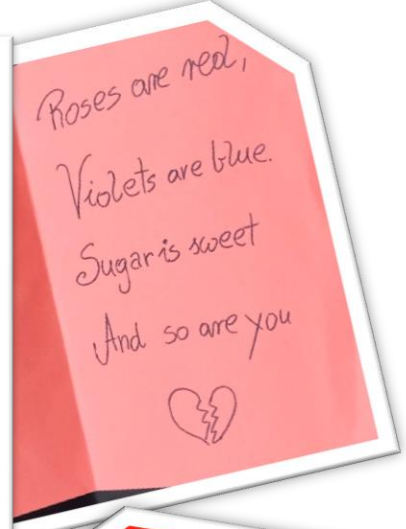 Roses are red,
Violets are blue.
Sugar is sweet
And so are you